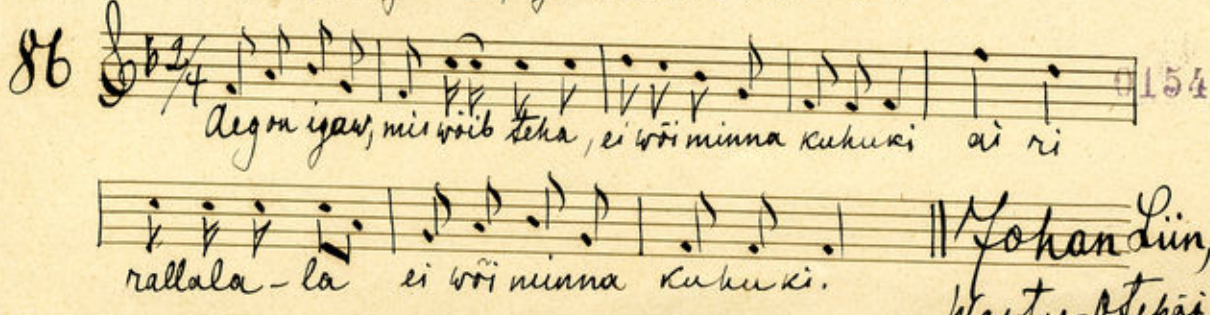 86 2/4 0154
Aeg on igaw, mis wõib teha, ei wõi minna kuhuki ai ri
rallala-la ei wõi minna kuhuki. Johan Liin,